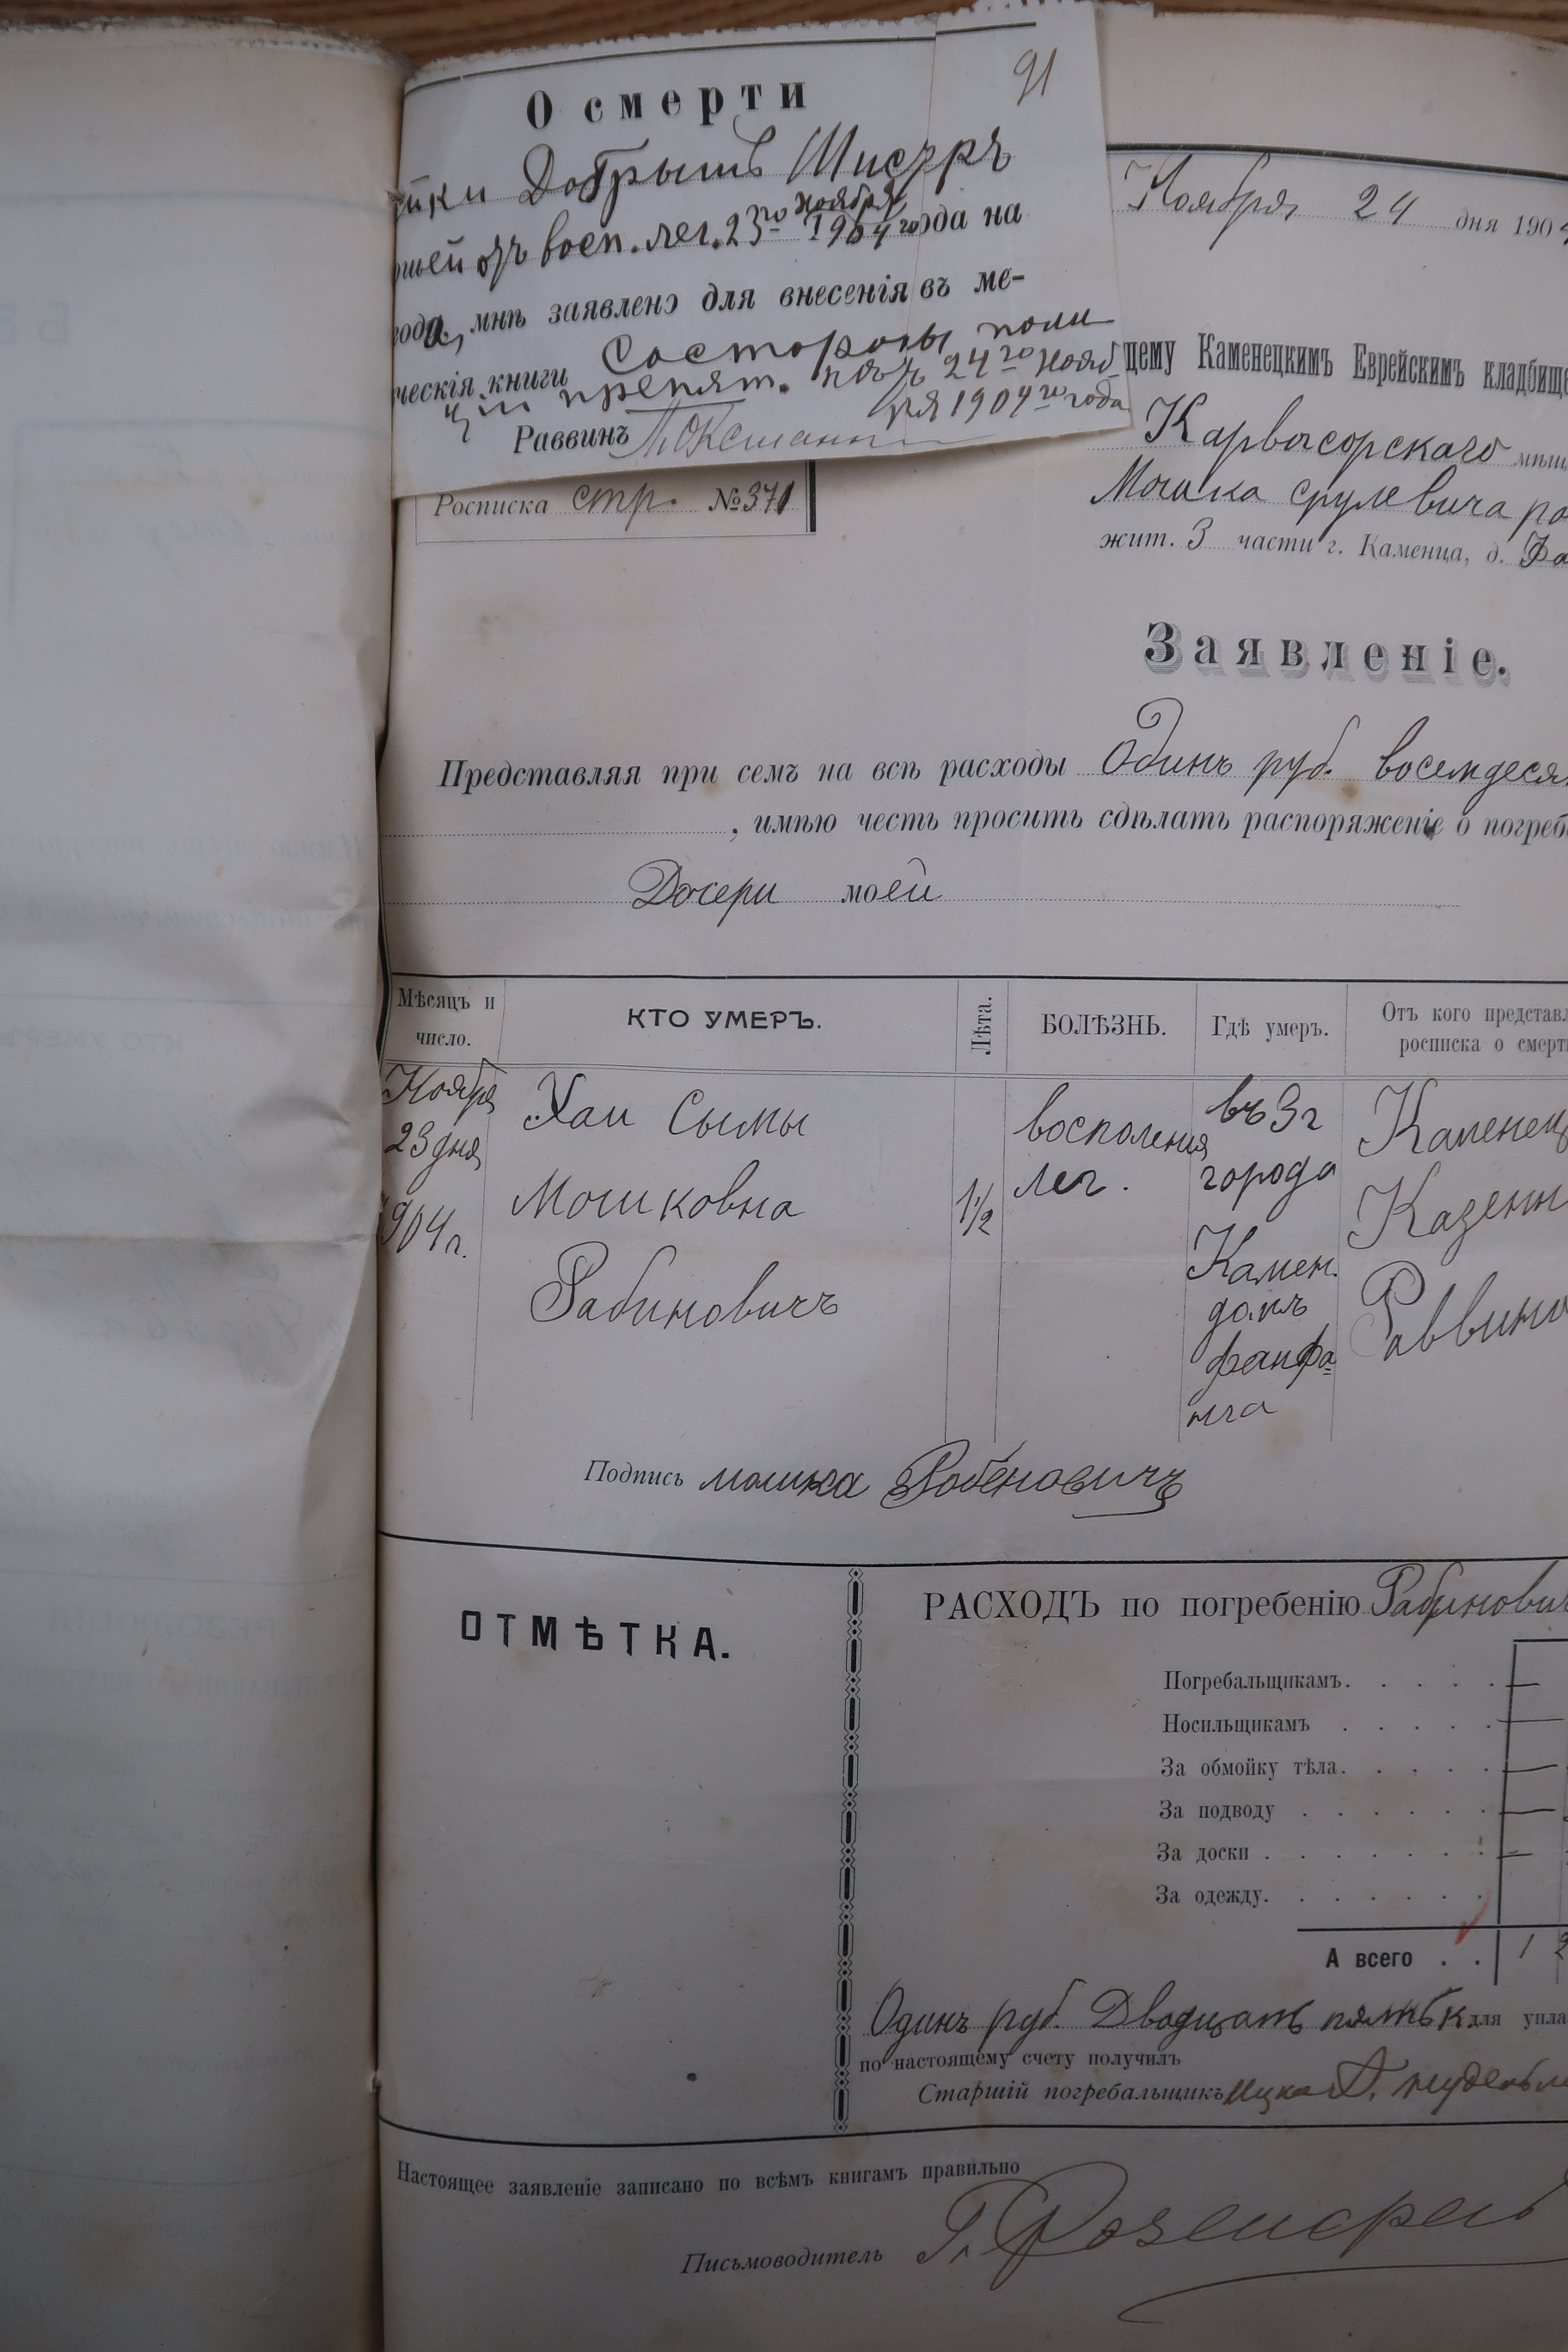 91
О смерти
йки Добрышъ Шисеръ
шей отъ восп. лег. 23го ноября 1904го года на
года, мнѣ заявлено для внесенія въ ме-
ческія книги Состороны поли
ціи препят. нѣтъ 24го нояб
ря 1904го года
Раввинъ
Росписка стр. № 371
Ноября 24 дня 190
щему Каменецкимъ Еврейскимъ кладбище
Карвосорскаго мѣщ
Мошка Срулевича ра
жит. 3 части г. Каменца, д. Фа
Заявленіе.
Представляя при семъ на всѣ расходы Одинъ руб. восемдеся
, имѣю честь просить сдѣлать распоряженіе о погреб
Дочери моей
Мѣсяцъ и число.
КТО УМЕРЪ.
Лѣта.
БОЛѢЗНЬ.
Гдѣ умеръ.
Отъ кого представл
росписка о смерт
Ноября
23 дня
1904 г.
Хаи Сымы
Мошковна
Рабиновичъ
1½
восполения
лег.
въ 3 г
города
Камен.
домъ
фанфа
Каменец
Казенн
Раввин
Подпись мошка Рабеновичъ
ОТМѢТКА.
РАСХОДЪ по погребенію Рабинови
Погребальщикамъ.
Носильщикамъ
За обмойку тѣла.
За подводу
За доски
За одежду.
А всего 1 2
Одинъ руб. Двадцать пять к для упла
по настоящему счету получилъ
Старшій погребальщикъ Ицко
Настоящее заявленіе записано по всѣмъ книгамъ правильно
Письмоводитель